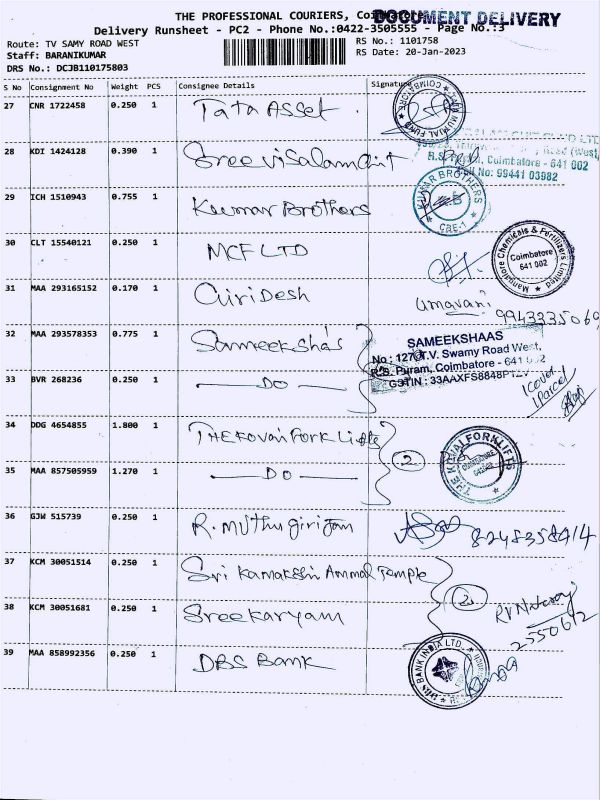 THE PROFESSIONAL COURIERS, Coimbatore
DOCUMENT DELIVERY
Delivery Runsheet - PC2 - Phone No.:0422-3505555 - Page No.:3
Route: TV SAMY ROAD WEST
RS No.: 1101758
Staff: BARANIKUMAR
RS Date: 20-Jan-2023
DRS No.: DCJB110175803
S No Consignment No Weight PCS Consignee Details Signature
27 CNR 1722458 0.250 1 Tata Asset
28 KDI 1424128 0.390 1 Sree Visalam Chit
R.S. Puram, Coimbatore - 641 002
Cell No: 99441 03982
29 ICH 1510943 0.755 1 Kumar Brothers
KUMAR BROTHERS
CBE-1
30 CLT 15540121 0.250 1 MCF LTD
Mangalore Chemicals & Fertilizers Limited
Coimbatore
641 002
31 MAA 293165152 0.170 1 Giridesh
umavani
9943335069
32 MAA 293578353 0.775 1 Sameeksha's
SAMEEKSHAAS
No : 127, T.V. Swamy Road West,
R.S. Puram, Coimbatore - 641 002
GSTIN : 33AAXFS8848P1ZV
33 BVR 268236 0.250 1 — DO —
1 Cover
1 Parcel
34 DDG 4654855 1.800 1 THE Kovai Fork Lifts
2
THE KOVAI FORKLIFTS
COIMBATORE
35 MAA 857505959 1.270 1 — DO —
36 GJW 515739 0.250 1 R. Muthugirijan
8248358414
37 KCM 30051514 0.250 1 Sri Kamakshi Ammal Temple
38 KCM 30051681 0.250 1 Sreekaryam
2
RVNataraj
2550612
39 MAA 858992356 0.250 1 DBS Bank
DBS BANK INDIA LTD.